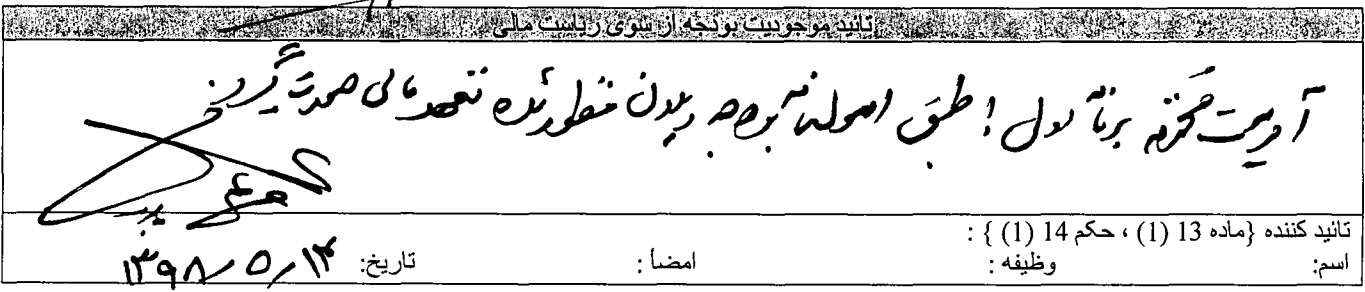 تائید موجودیت بودجه از سوی ریاست مالی
آمریت محترم برنا دول ! طبق اصولنامه بودجه و پلان منظور شده تعهد مالی صورت گیرد.
تائید کننده {ماده 13 (1) ، حکم 14 (1) } :
اسم: وظیفه : امضأ : تاریخ: ۱۳۹۸/۵/۱۴